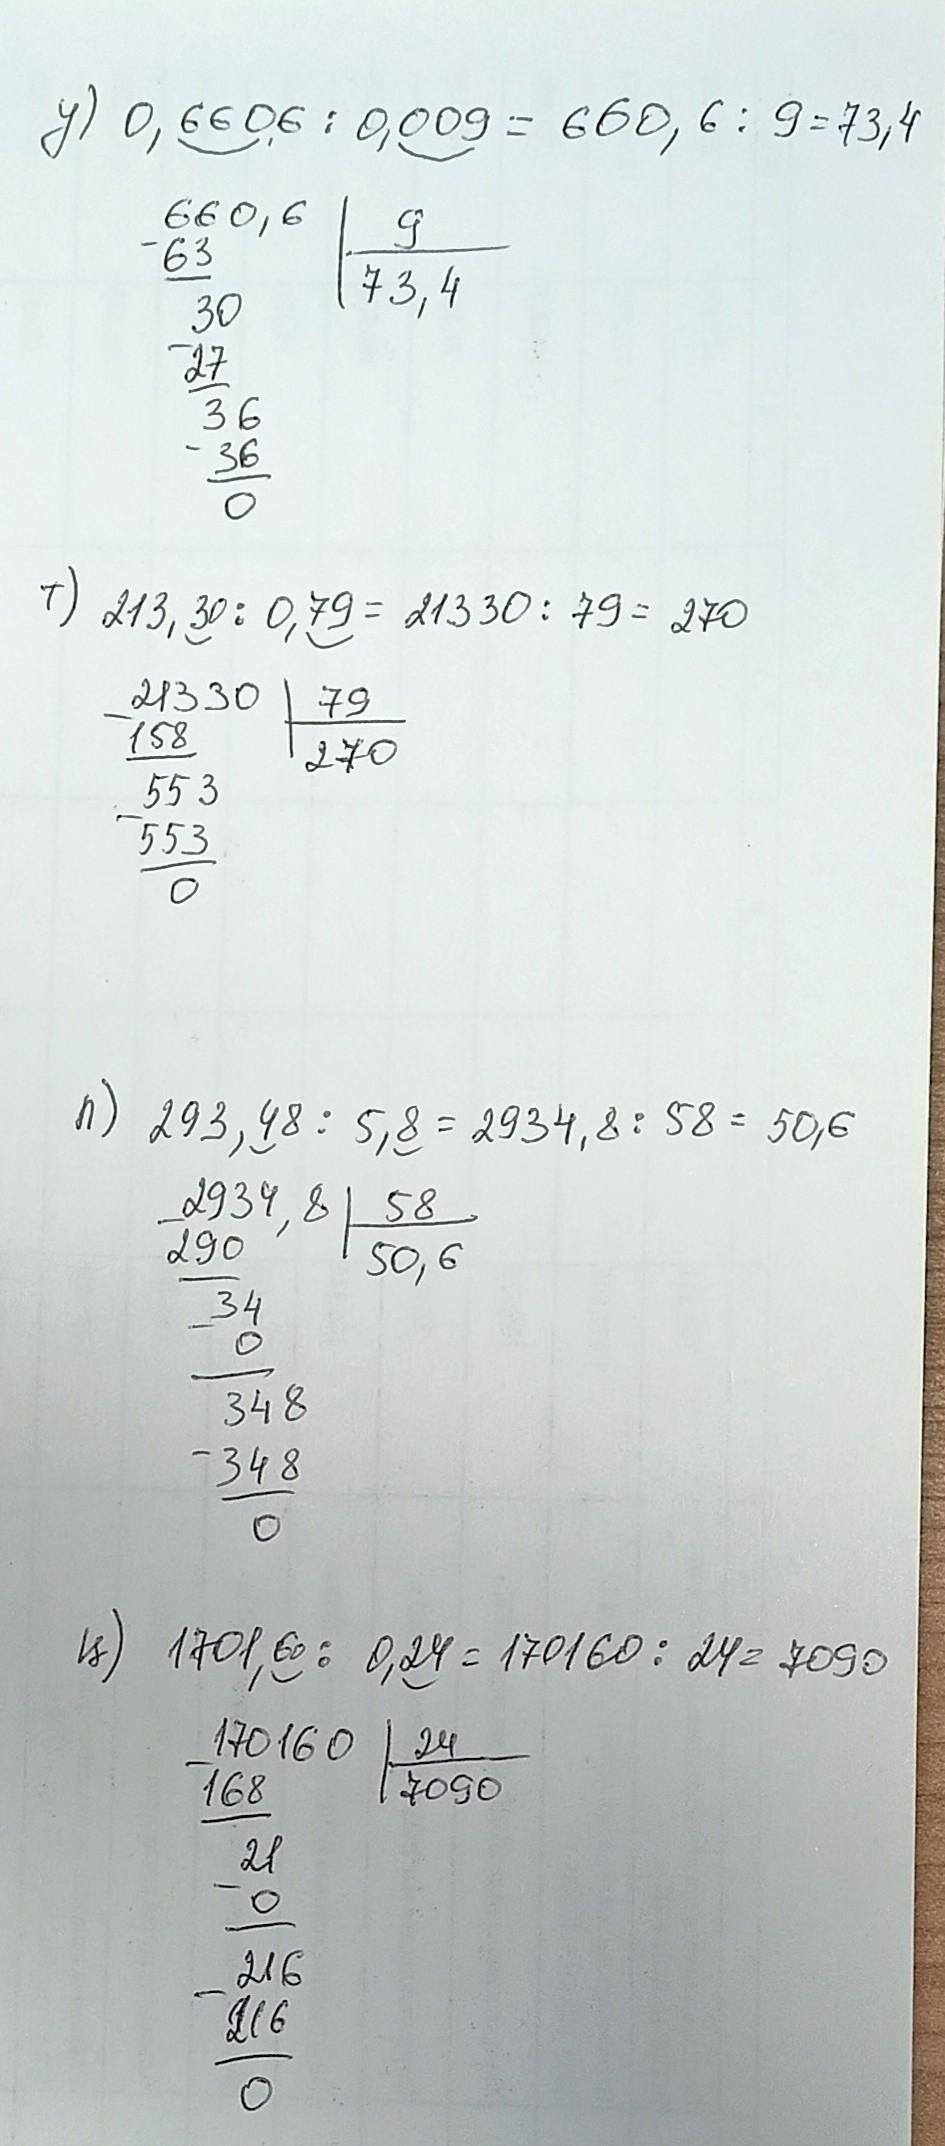 у) 0,6606 : 0,009 = 660,6 : 9 = 73,4
660,6 | 9
- 63 | 73,4
30
- 27
36
- 36
0
т) 213,30 : 0,79 = 21330 : 79 = 270
- 21330 | 79
158 | 270
553
- 553
0
л) 293,48 : 5,8 = 2934,8 : 58 = 50,6
- 2934,8 | 58
290 | 50,6
- 34
0
348
- 348
0
ц) 1701,60 : 0,24 = 170160 : 24 = 7090
- 170160 | 24
168 | 7090
21
- 0
216
- 216
0